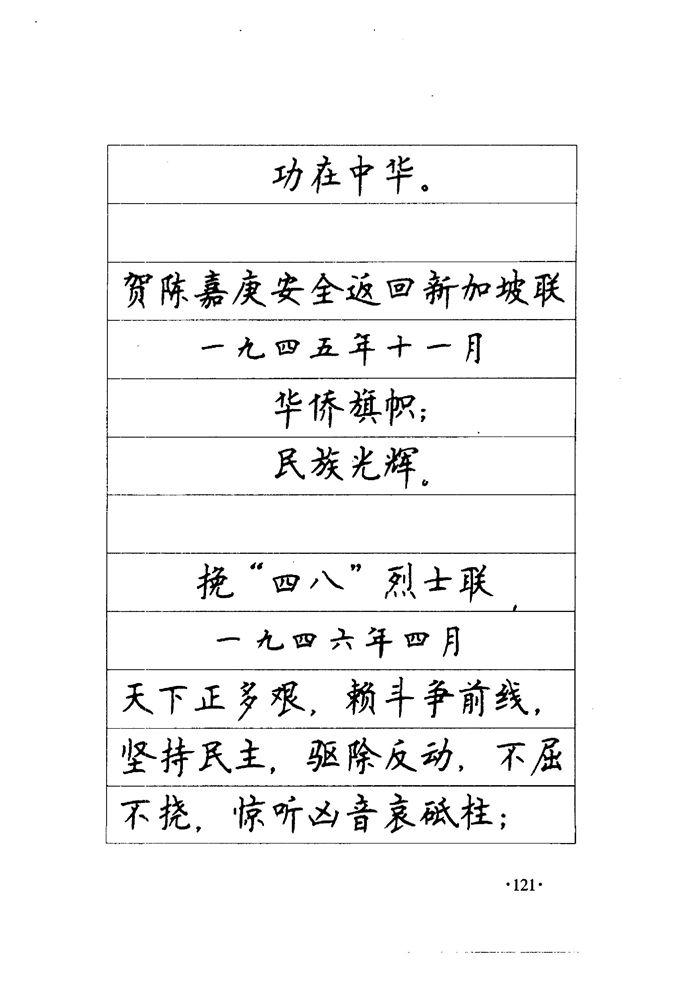 功在中华。
贺陈嘉庚安全返回新加坡联
一九四五年十一月
华侨旗帜；
民族光辉。
挽“四八”烈士联
一九四六年四月
天下正多艰，赖斗争前线，
坚持民主，驱除反动，不屈
不挠，惊听凶音哀砥柱；
·121·